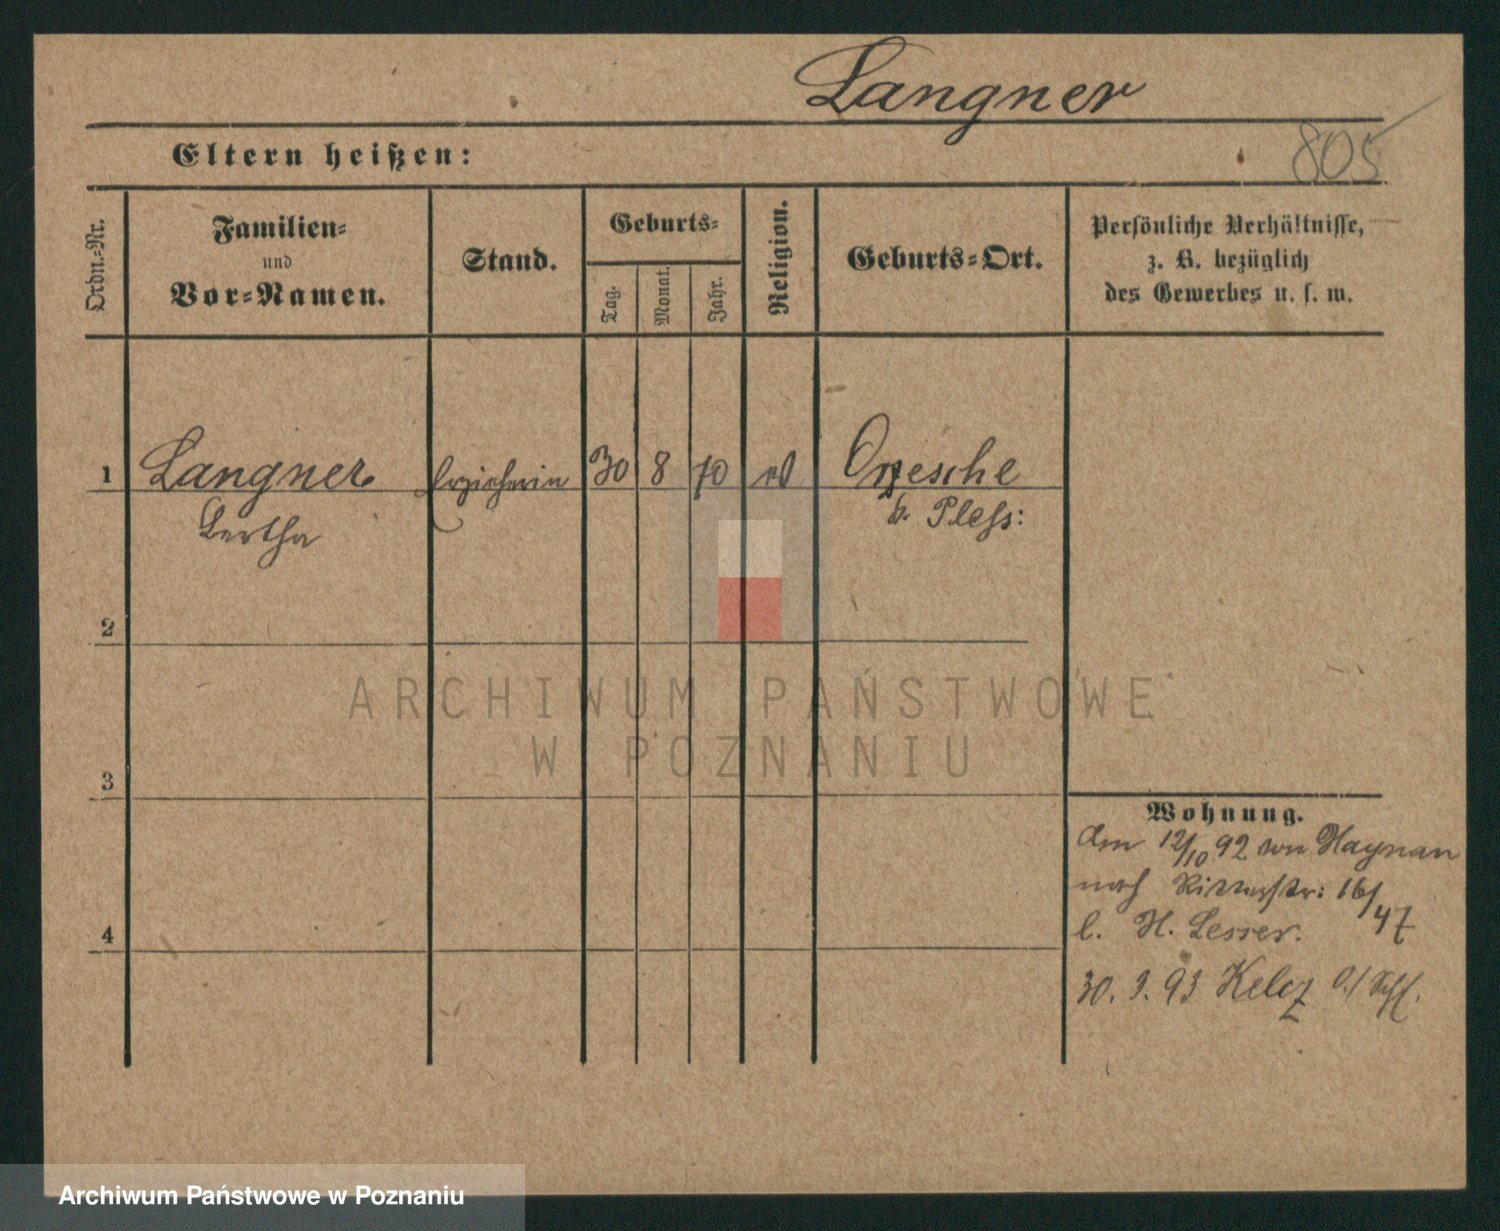 Langner
805
Eltern heißen:
Ordn.-Nr.
Familien-
und
Vor-Namen.
Stand.
Geburts-
Tag.
Monat.
Jahr.
Religion.
Geburts-Ort.
Persönliche Verhältnisse,
z. B. bezüglich
des Gewerbes u. s. w.
1 Langner Erzieherin 30 8 70 Orzesche
Bertha b. Pless:
2
3
4
ARCHIWUM PAŃSTWOWE
W POZNANIU
Wohnung.
Am 12/10 92 von Haynau
nach Ritterstr: 16/47
b. H. Lesser.
30. 3. 93 O./Schl.
Archiwum Państwowe w Poznaniu